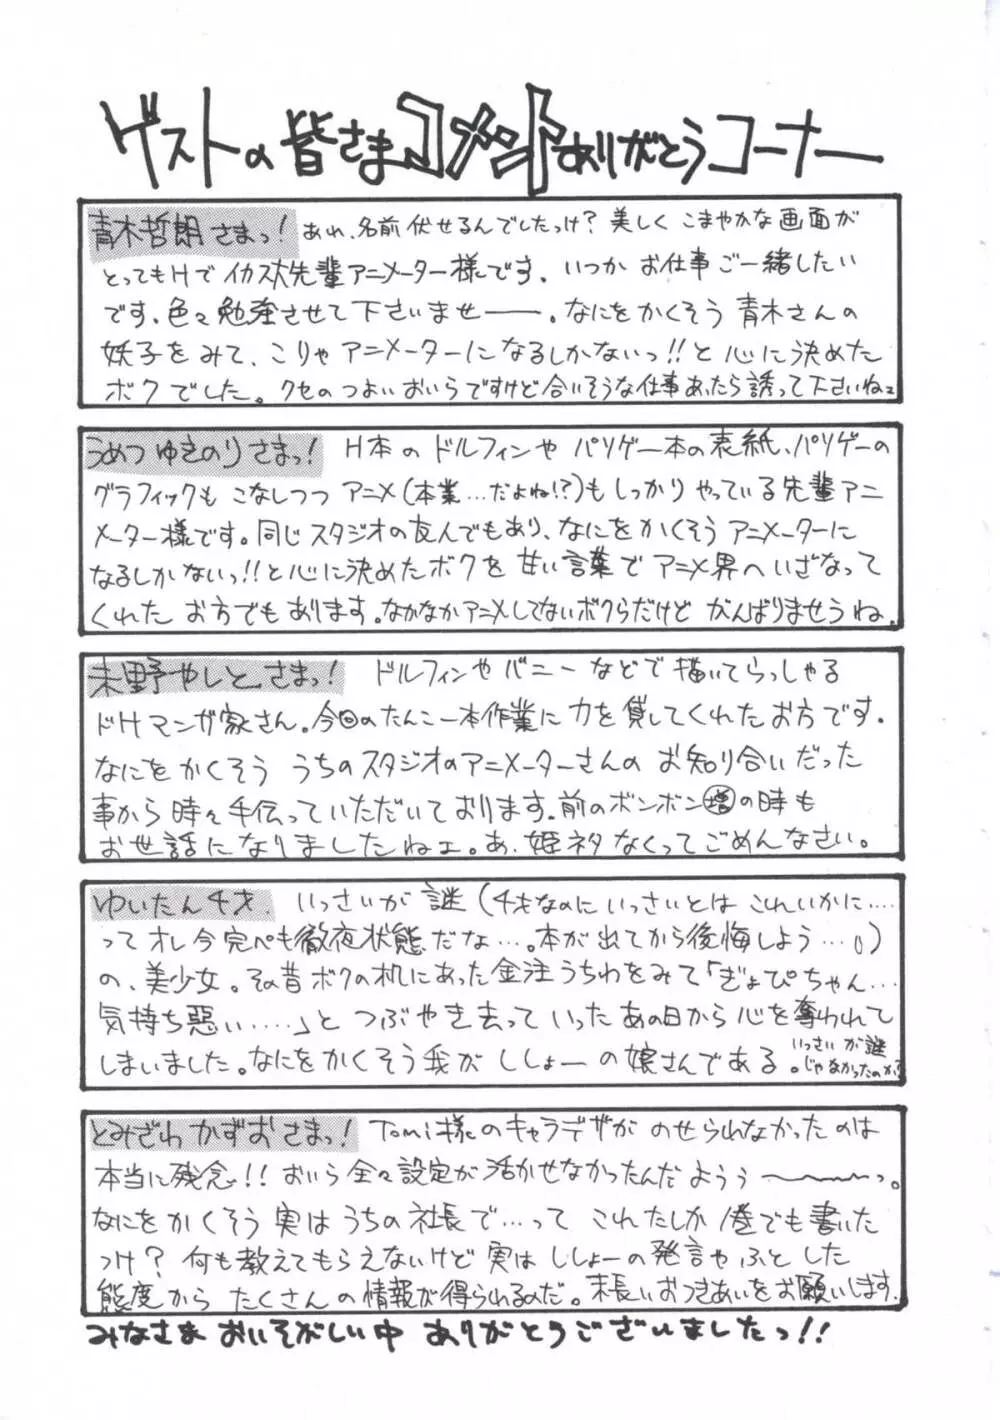 ゲストの皆さまコメントありがとうコーナー
青木哲朗さまっ! あれ、名前伏せるんでしたっけ?美しくこまやかな画面が
とってもHでイカス大先輩アニメーター様です。いつかお仕事ご一緒したい
です、色々勉強させて下さいませーー。なにをかくそう青木さんの
妖子をみて、こりゃアニメーターになるしかないっ!!と心に決めた
ボクでした。クセのつよいおいらですけど合いそうな仕事あったら誘って下さいねェ
うめつゆきのりさまっ! H本のドルフィンやパソゲー本の表紙、パソゲーの
グラフィックもこなしつつアニメ(本業…だよね!?)もしっかりやっている先輩アニ
メーター様です。同じスタジオの友人でもあり、なにをかくそうアニメーターに
なるしかないっ!!と心に決めたボクを甘い言葉でアニメ界へいざなって
くれたお方でもあります。なかなかアニメしてないボクらだけどがんばりませうね。
未野やしとさまっ! ドルフィンやバニーなどで描いてらっしゃる
ドHマンガ家さん。今回のたんこー本作業に力を貸してくれたお方です。
なにをかくそううちのスタジオのアニメーターさんのお知り合いだった
事から時々手伝っていただいております。前のボンボン増の時も
お世話になりましたねェ。あ、姫ネタなくってごめんなさい。
ゆいたんチォ. いっさいが謎(チォなのにいっさいとはこれいかに‥‥
ってオレ今完ペも徹夜状態だな…。本が出てから後悔しよう…。)
の、美少女。その昔ボクの机にあった金注うちわをみて「ぎょぴちゃん…
気持ち悪い……」とつぶやき去っていったあの日から心を奪われて
しまいました。なにをかくそう我がししょーの娘さんである。いっさいが謎
じゃなかったのか?
とみざわかずおさまっ! Tomi様のキャラデザがのせられなかったのは
本当に残念!!おいら全々設定が活かせなかったんだようぅ〜〜〜っ。
なにをかくそう実はうちの社長で…ってこれたしか1巻でも書いた
っけ?何も教えてもらえないけど実はししょーの発言やふとした
態度からたくさんの情報が得られるのだ。末長いおつきあいをお願いします。
みなさまおいそがしい中ありがとうございましたっ!!